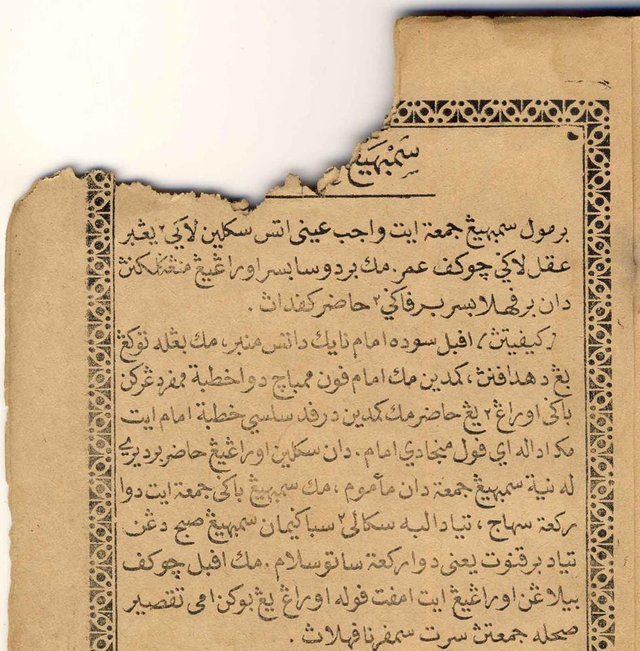 سَمْبَهَيڠ
برمول سمبهيڠ جمعة ايت واجب عيني اتس سكلين لاكي٢ يڠبر
عقل لاكي چوكف عمر. مك بردوسا بسر اوراڠيڠ منڠكلكنڽ
دان برفهلا بسر برفاكي٢ حاضر كفداڽ .
(كيفيتڽ) افبل سوده امام نايك داتس منبر، مك بڠله توكڠ
يڠ دهدافنڽ، كمدين مك امام فون ممباچ دوا خطبة ممفردڠركن
باكي اوراڠ٢ يڠ حاضر مك كمدين درفد سلسي خطبة امام ايت
مك اداله اي فول منجادي امام. دان سكلين اوراڠيڠ حاضر برديري
له نية سمبهيڠ جمعة دان مأموم، مك سمبهيڠ باكي جمعة ايت دوا
ركعة سهاج، تياد البه سكالي٢ سباكيمان سمبهيڠ صبح دڠن
تياد برقنوت يعني دوا ركعة ساتو سلام. مك افبل چوكف
بيلاڠن اوراڠيڠ ايت امفت فوله اوراڠ يڠ بوكن امي تقصير
صحله جمعتڽ سرت سمفرنا فهلاڽ .